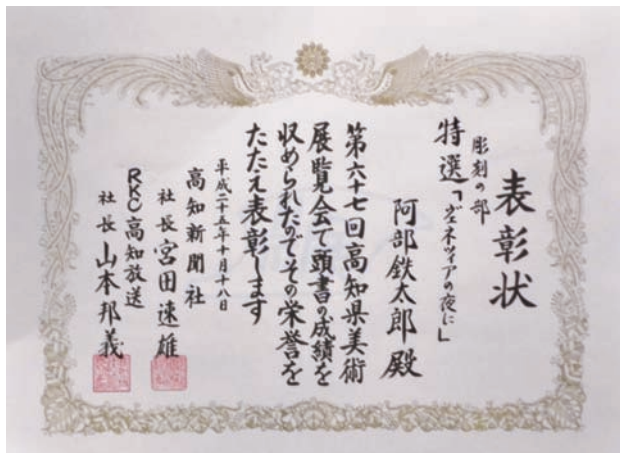 表彰状
彫刻の部
特選「ヴェネツィアの夜に」
阿部鉄太郎殿
第六十七回高知県美術
展覧会で頭書の成績を
収められたのでその栄誉を
たたえ表彰します
平成二十五年十月十八日
高知新聞社
社長宮田速雄
RKC高知放送
社長山本邦義